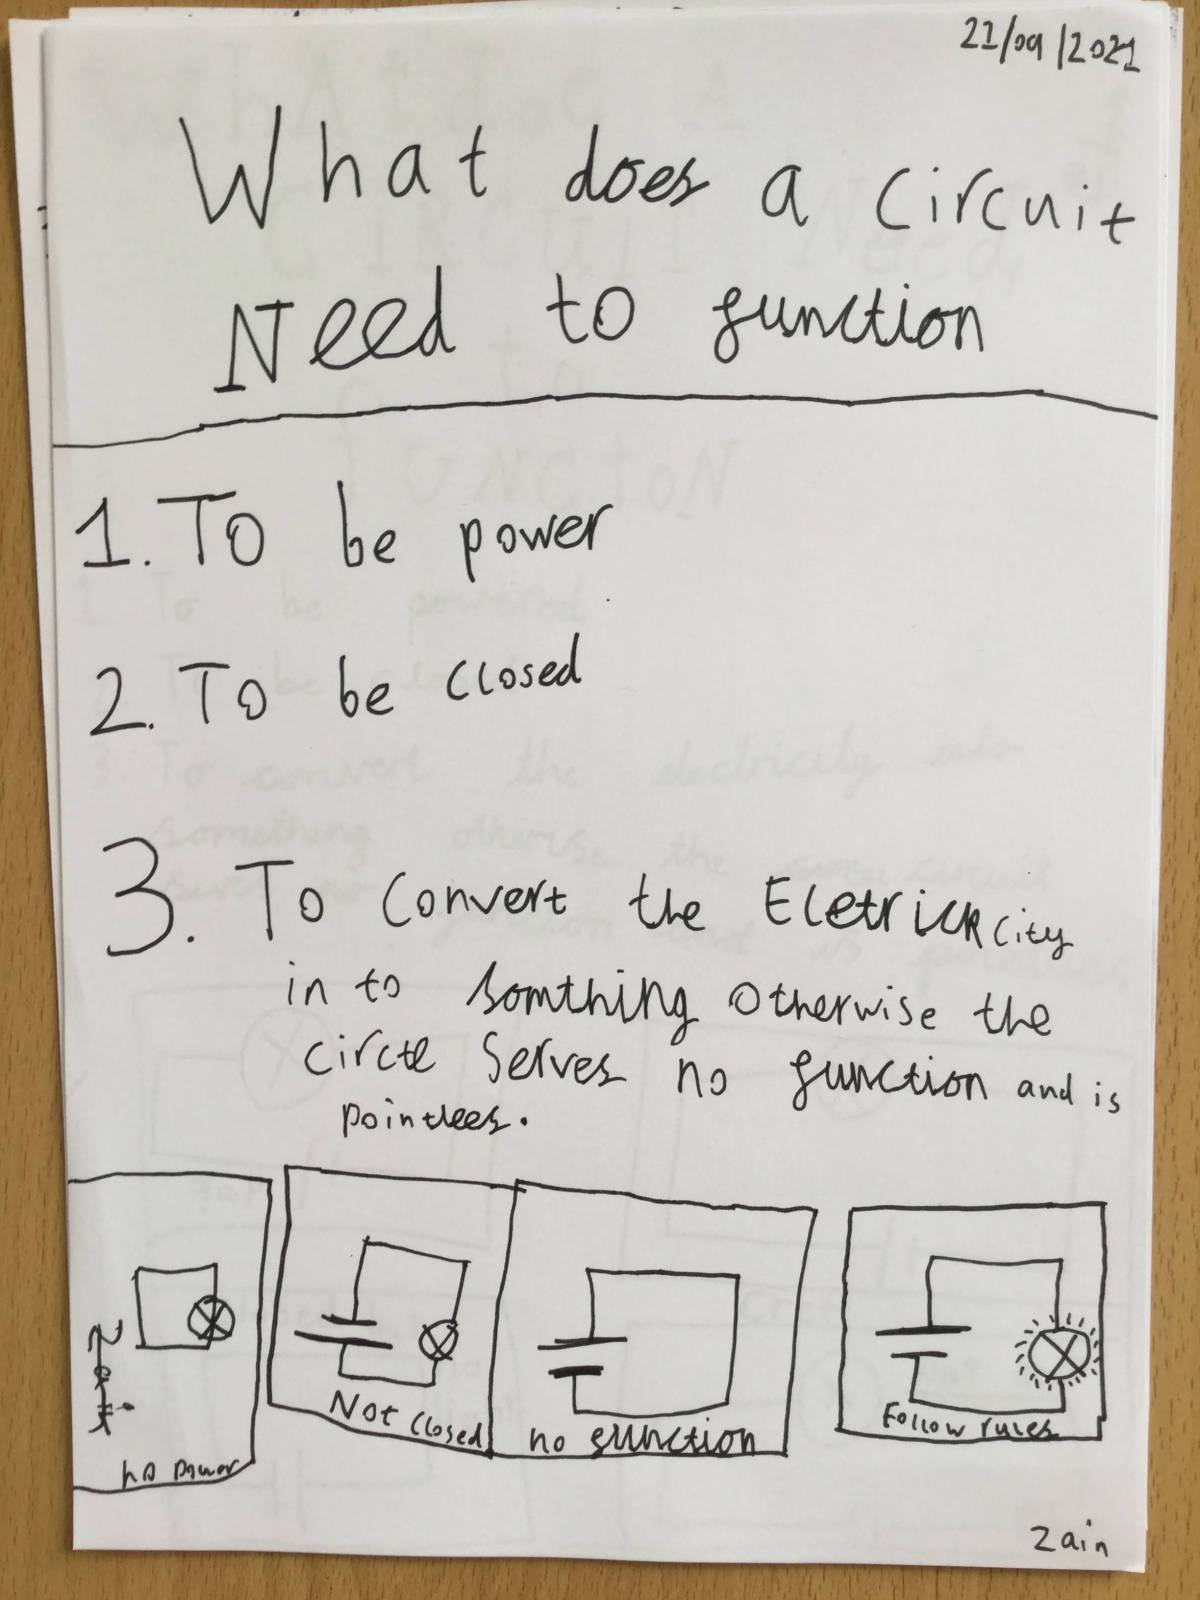 21/09/2021
What does a circuit
Need to function
1. To be power
2. To be closed
3. To convert the Eletrickcity
in to somthing otherwise the
circte serves no function and is
pointlees.
Zain
no power
Not closed
no function
Follow rules
Zain